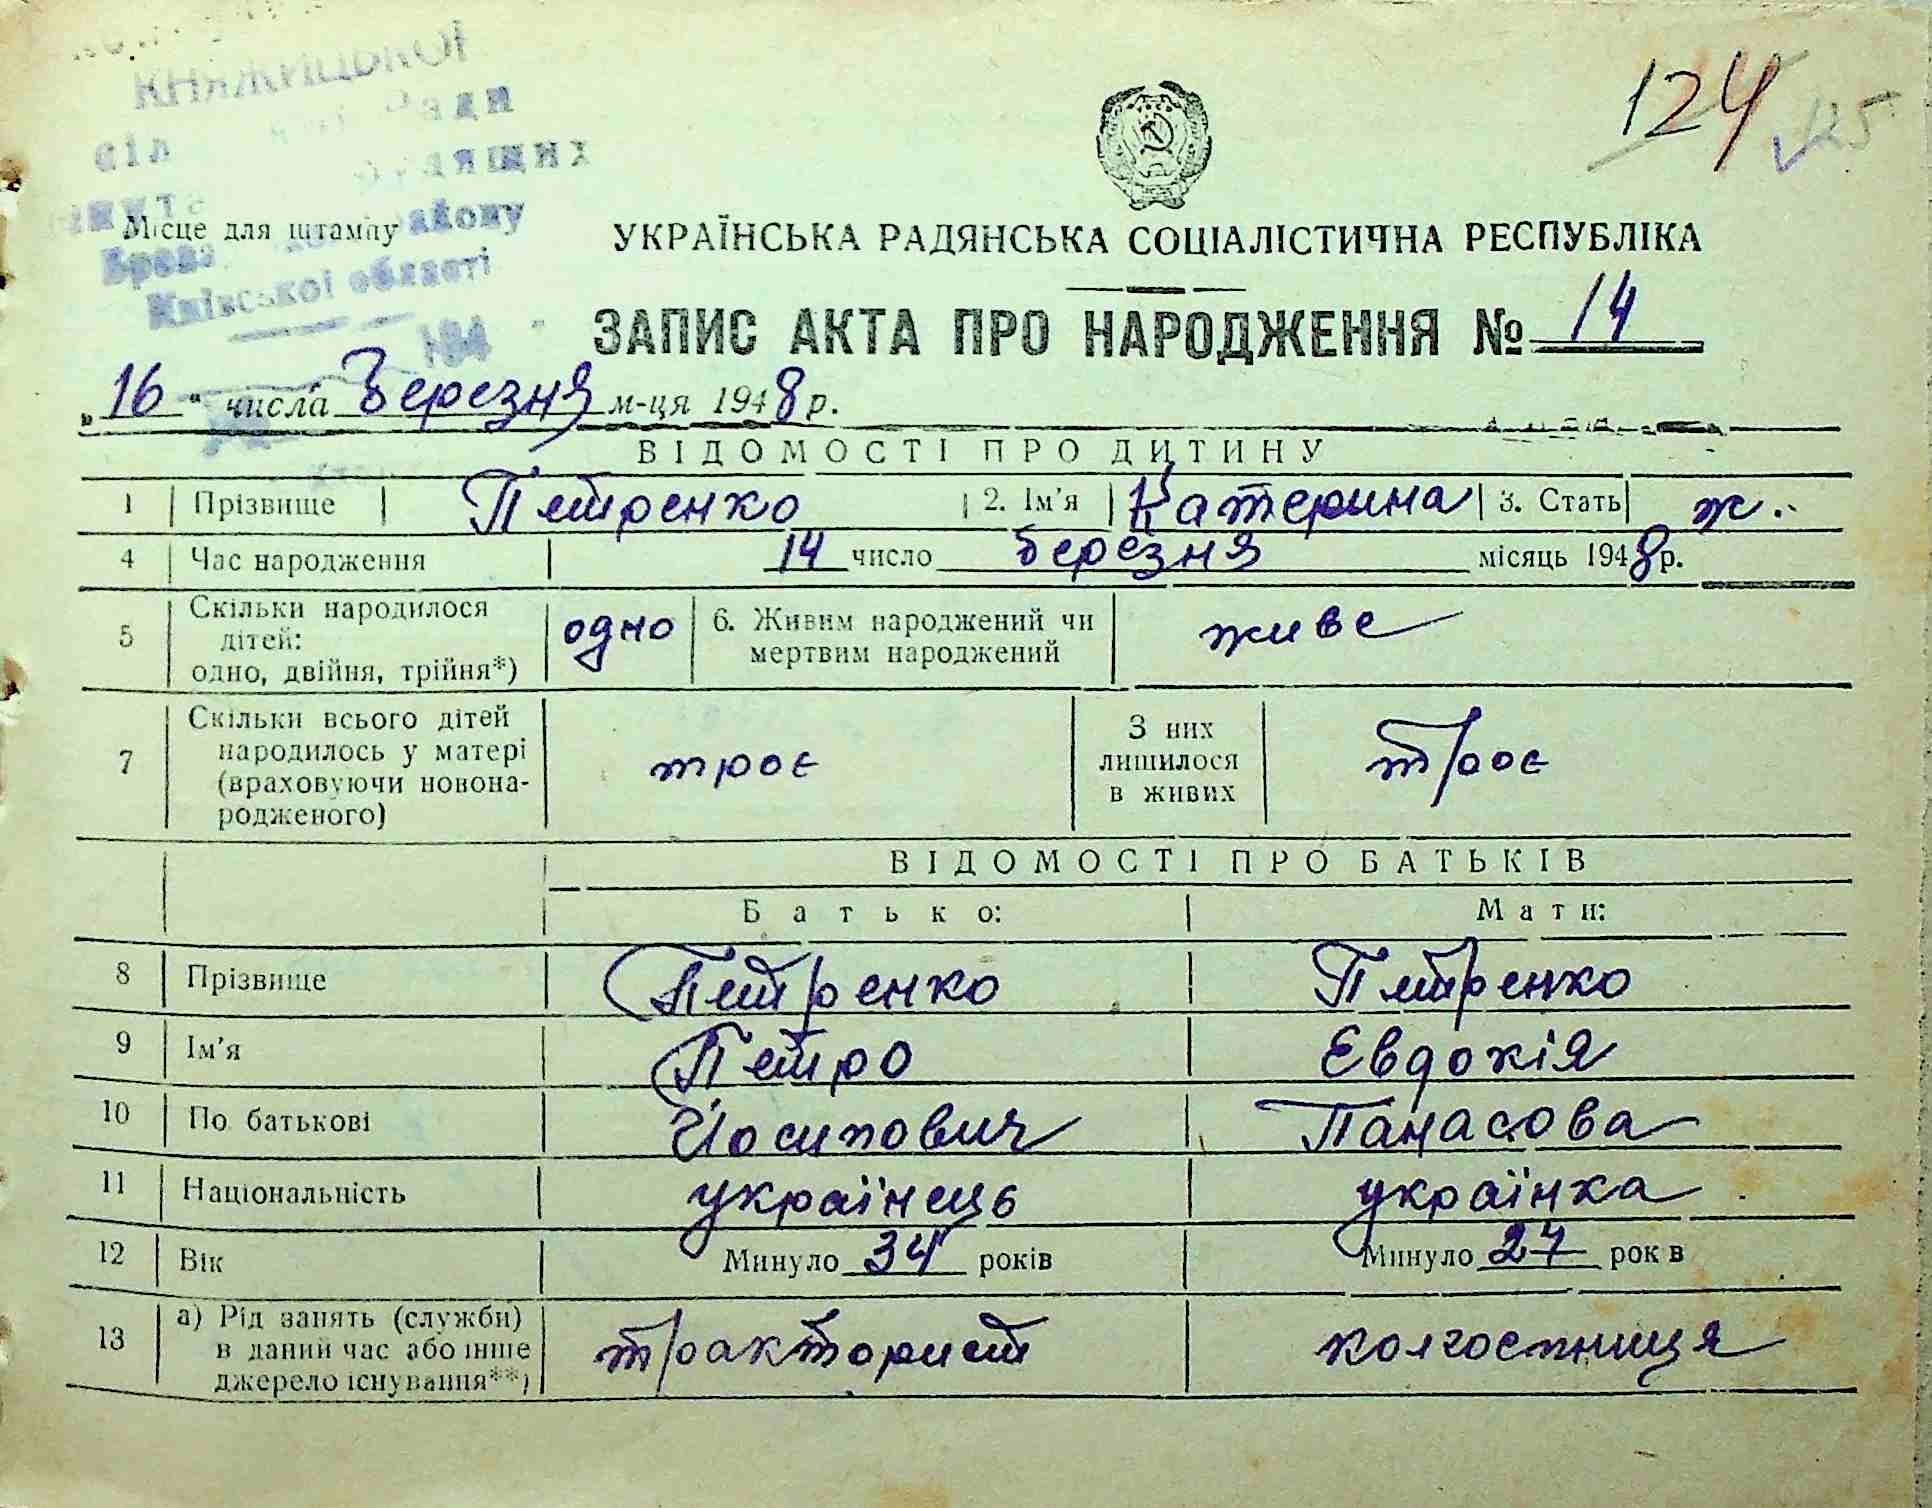 КНЯЖИЦЬКОЇ
124
125
Київської області
194
Місце для штампу
УКРАЇНСЬКА РАДЯНСЬКА СОЦІАЛІСТИЧНА РЕСПУБЛІКА
ЗАПИС АКТА ПРО НАРОДЖЕННЯ № 14
„16“ числа березня м-ця 1948 р.
ВІДОМОСТІ ПРО ДИТИНУ
1 Прізвище Петренко 2. Ім'я Катерина 3. Стать ж.
4 Час народження 14 число березня місяць 1948 р.
5 Скільки народилося дітей: одно, двійня, трійня*) одно 6. Живим народжений чи мертвим народжений живе
7 Скільки всього дітей народилось у матері (враховуючи новонародженого) троє З них лишилося в живих троє
ВІДОМОСТІ ПРО БАТЬКІВ
Батько: Мати:
8 Прізвище Петренко Петренко
9 Ім'я Петро Євдокія
10 По батькові Йосипович Панасова
11 Національність українець українка
12 Вік Минуло 34 років Минуло 27 років
13 а) Рід занять (служби) в даний час або інше джерело існування**) тракторист колгоспниця